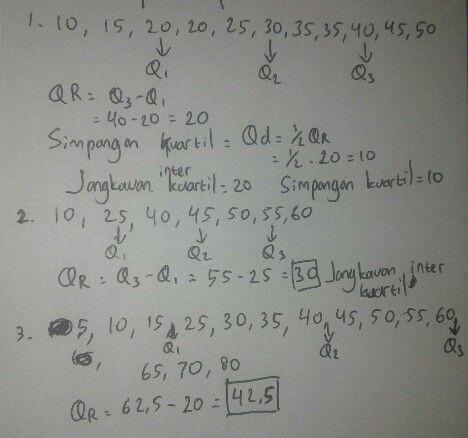 1. 10, 15, 20, 20, 25, 30, 35, 35, 40, 45, 50
Q₁ Q₂ Q₃
QR = Q₃ - Q₁
= 40 - 20 = 20
Simpangan kuartil = Qd = ½ QR
= ½ . 20 = 10
Jangkauan inter kuartil = 20 Simpangan kuartil = 10
2. 10, 25, 40, 45, 50, 55, 60
Q₁ Q₂ Q₃
QR = Q₃ - Q₁ = 55 - 25 = 30 Jangkauan inter kuartil
3. 5, 10, 15, 25, 30, 35, 40, 45, 50, 55, 60,
Q₁ Q₂ Q₃
65, 70, 80
QR = 62,5 - 20 = 42,5